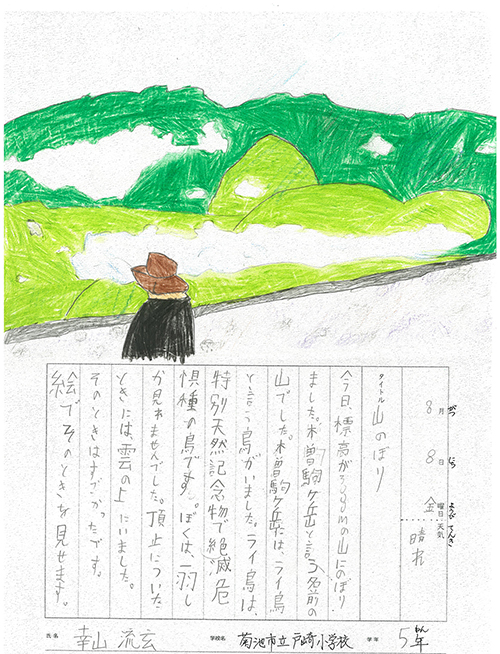 8月がつ
8日にち
金曜日ようび
天気てんき 晴れ
タイトル 山のぼり
今日、標高が3000mの山にのぼり
ました。木曽駒ケ岳と言う名前の
山でした。木曽駒ケ岳には、ライ鳥
と言う鳥がいました。ライ鳥は、
特別天然記念物で絶滅危
惧種の鳥です。ぼくは、一羽し
か見れませんでした。頂上についた
ときには、雲の上にいました。
そのときはすごかったです。
絵でそのときを見せます。
氏名 幸山 流玄
学校名 菊池市立戸崎小学校
学年 5年ねん